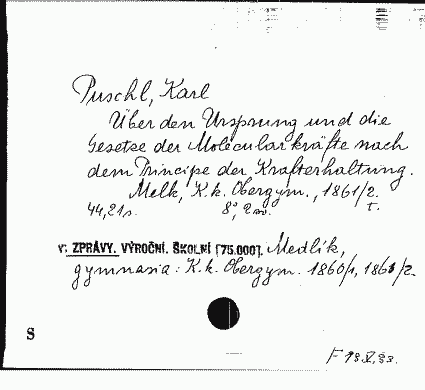 Puschl, Karl
Über den Ursprung und die
Gesetze der Molecularkräfte nach
dem Principe der Krafterhaltung.
Melk, K.k. Obergym., 1861/2.
44,21s. 8°, 2 t.
v: ZPRÁVY. VÝROČNÍ. ŠKOLNÍ [75.000]. Medlík,
gymnasia: K.k. Obergym. 1860/1, 1861/2.
S
F 18